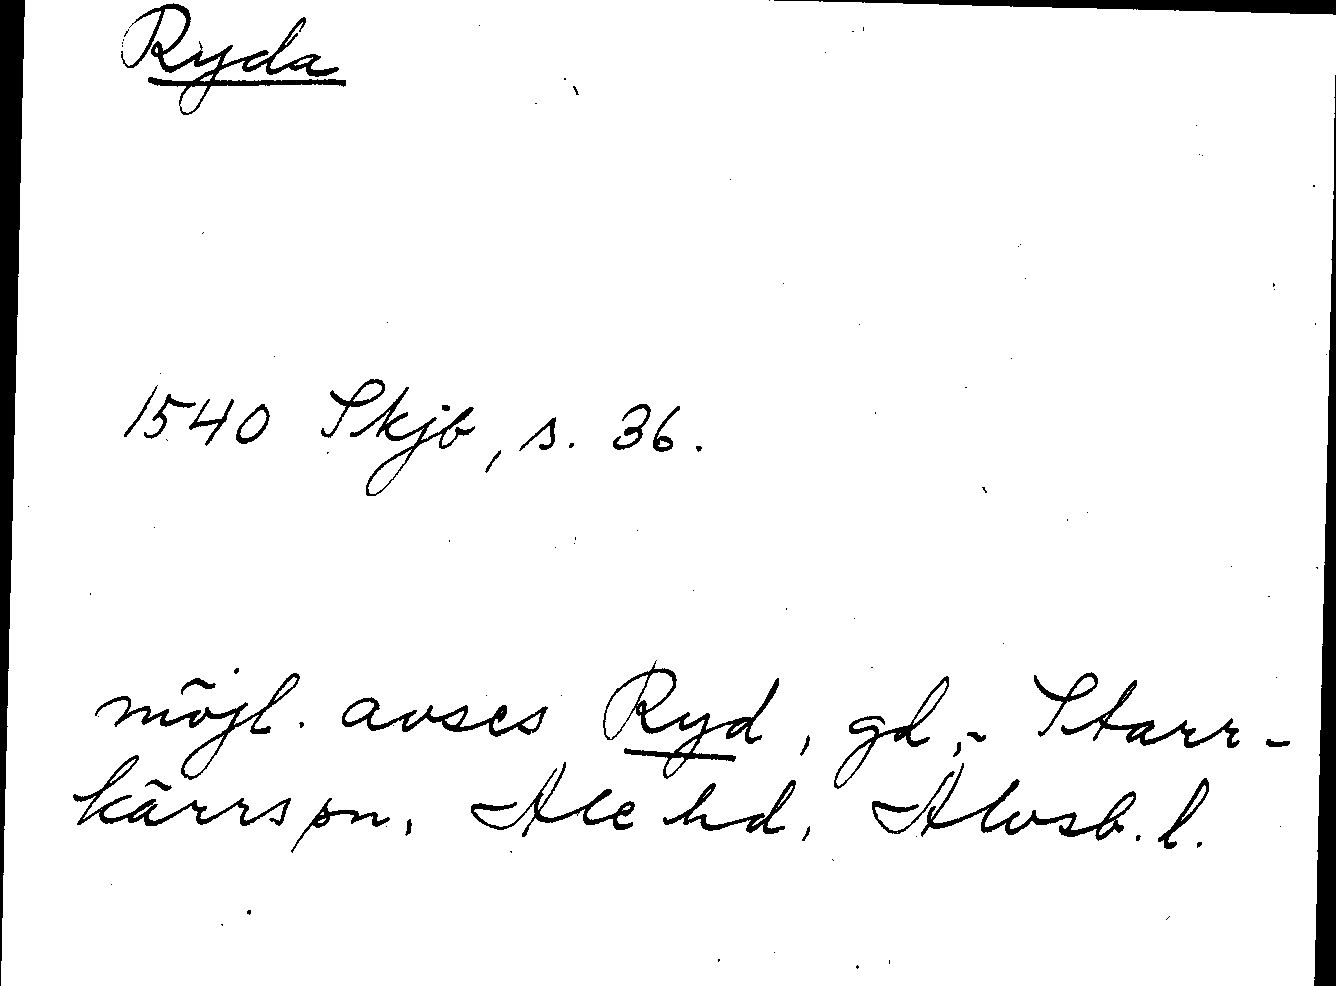 Ryda
1540 Skjb, s. 36.
möjl. avses Ryd, gd, Starr-
kärrs pn, Ale hd, Älvsb. l.